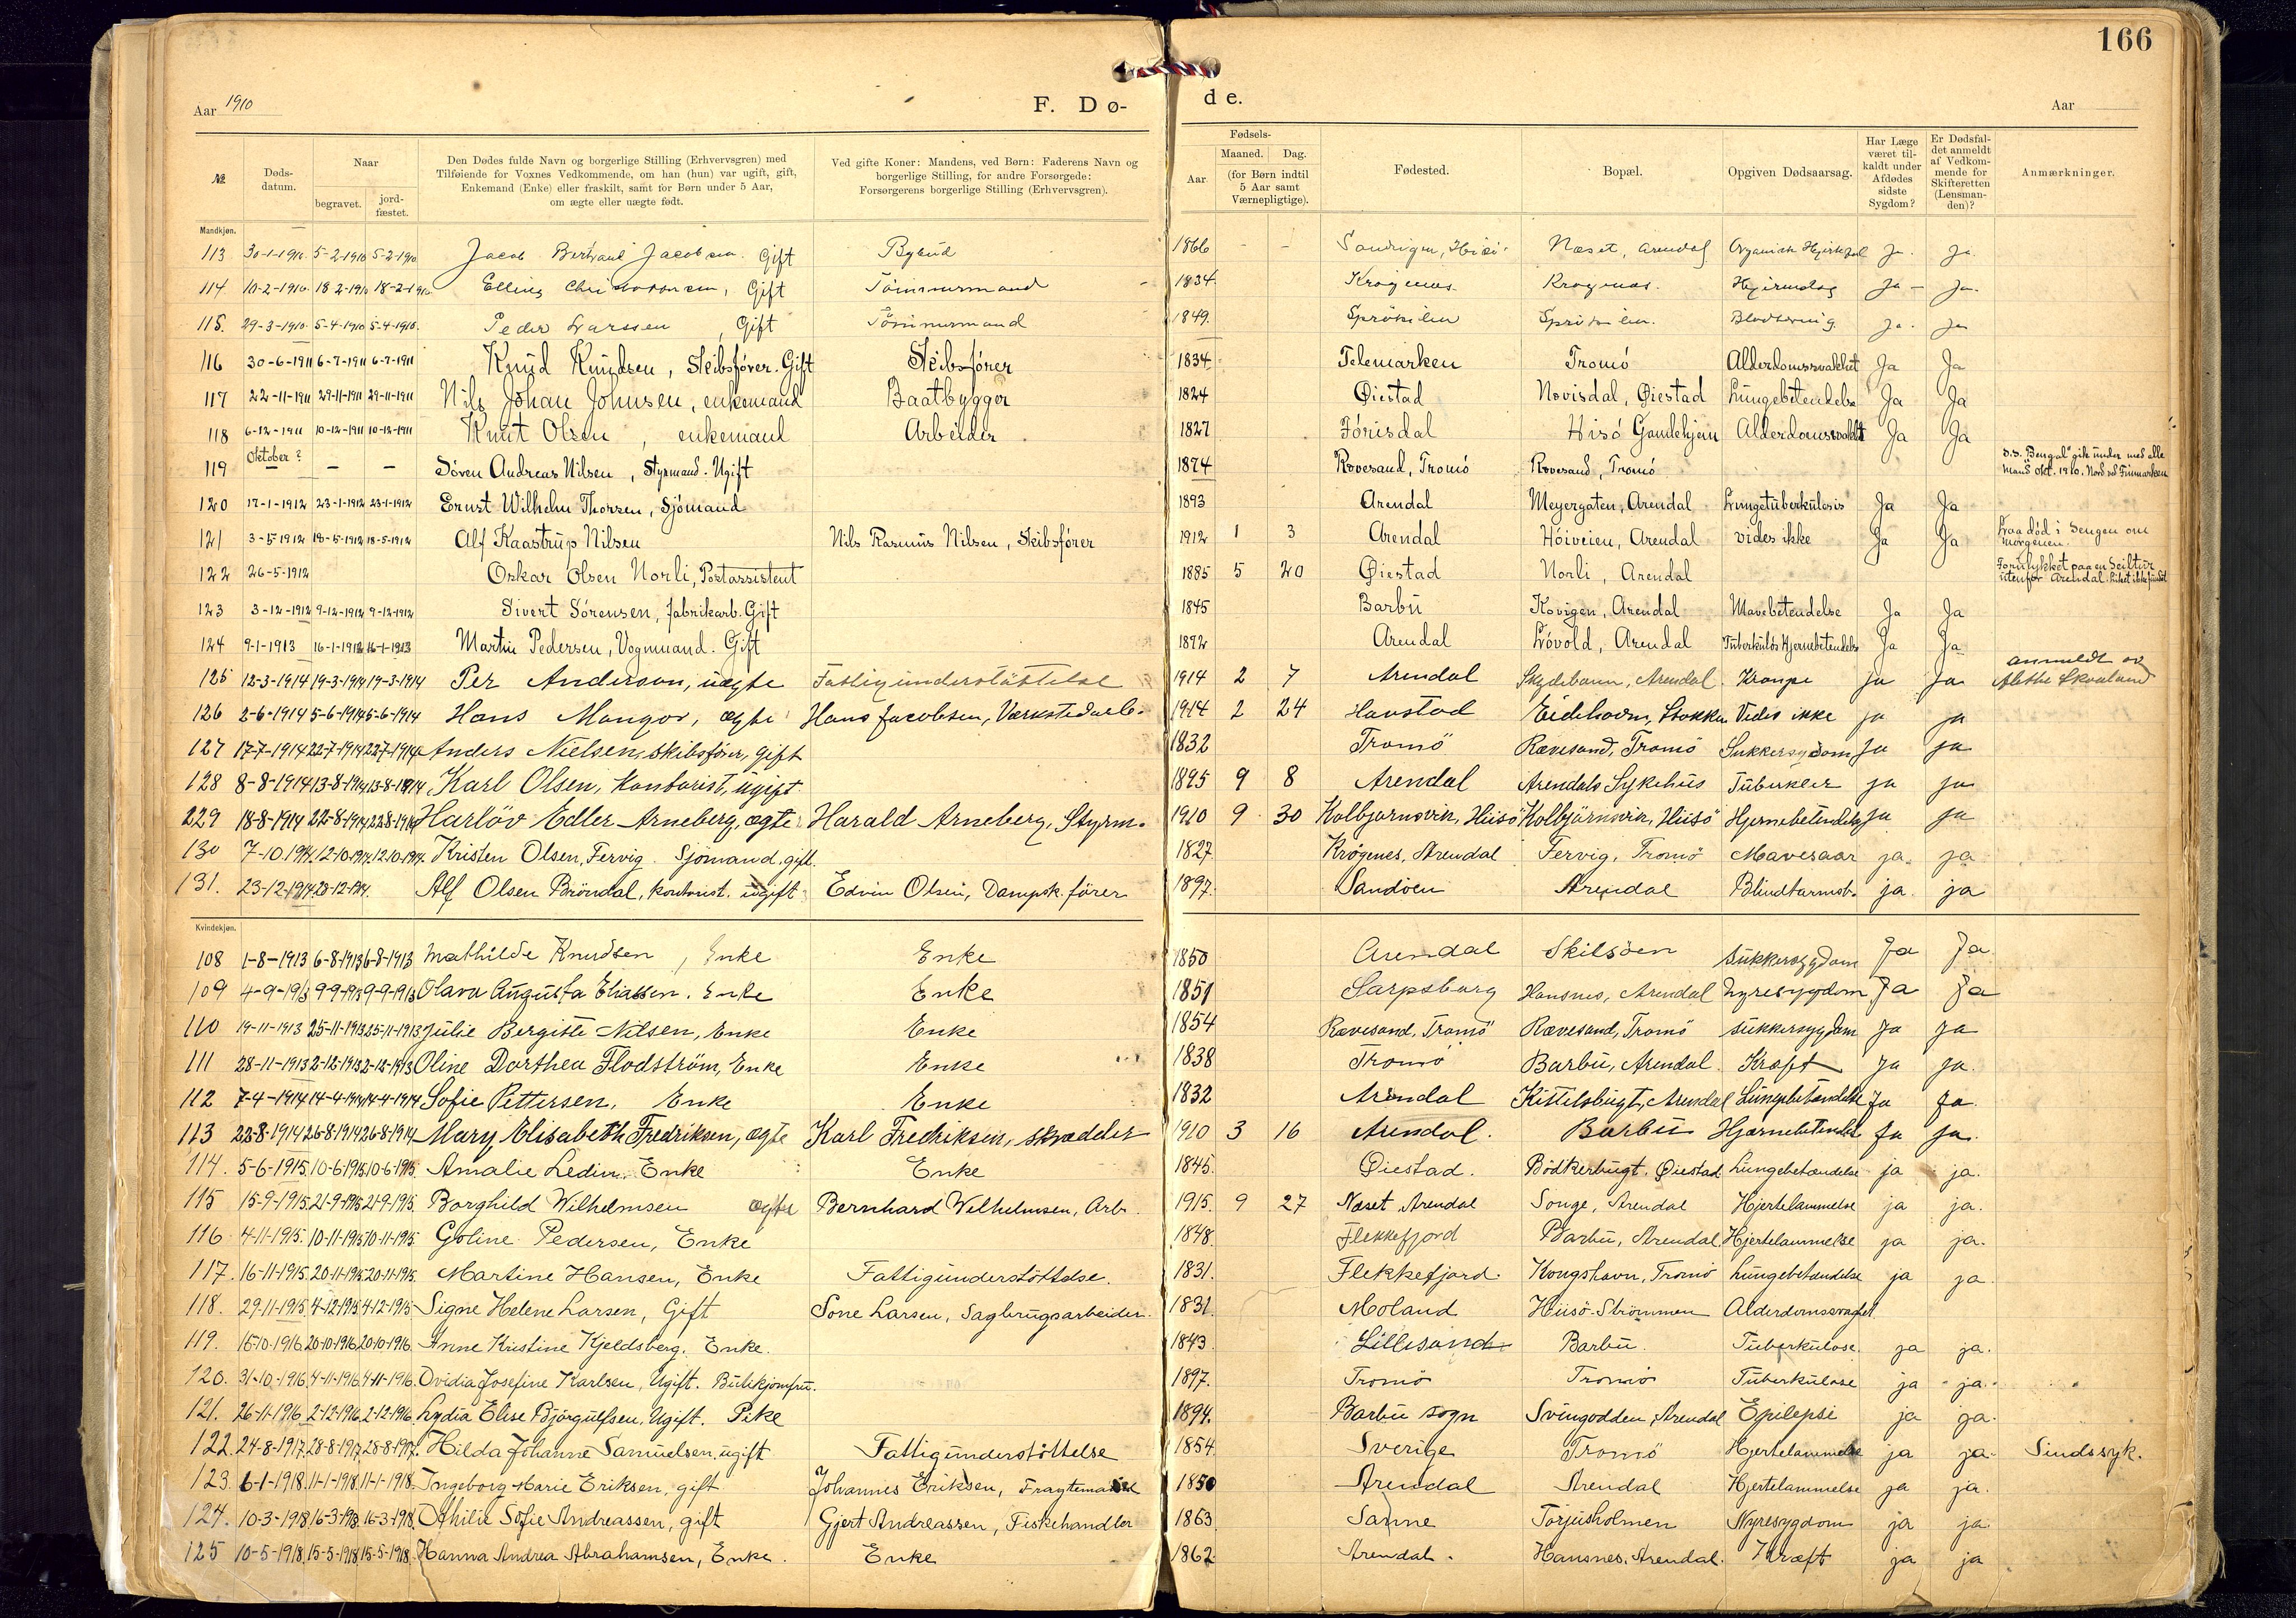 166
Aar 1910 F. Dø- de. Aar
№ Døds-datum. Naar begravet. jord-fæstet. Den Dødes fulde Navn og borgerlige Stilling (Erhvervsgren) med Tilføiende for Voxnes Vedkommende, om han (hun) var ugift, gift, Enkemand (Enke) eller fraskilt, samt for Børn under 5 Aar, om ægte eller uægte født. Ved gifte Koner: Mandens, ved Børn: Faderens Navn og borgerlige Stilling, for andre Forsørgede: Forsørgerens borgerlige Stilling (Erhvervsgren). Fødsels- Aar. Maaned. Dag. (for Børn indtil 5 Aar samt Værnepligtige). Fødested. Bopæl. Opgiven Dødsaarsag. Har Læge været til-kaldt under Afdødes sidste Sygdom? Er Dødsfal-det anmeldt af Vedkom-mende for Skifteretten (Lensman-den)? Anmærkninger.
Mandkjøn.
113 30-1-1910 5-2-1910 5-2-1910 Jacob Bertrand Jacobsen. Gift Bybud 1866 - - Næset, Arendal Organisk Hjertefeil Ja. Ja.
114 10-2-1910 18-2-1910 18-2-1910 Elling Christensen, Gift Tömmermand 1834 Krøgenes Krøgenes. Ja - Ja.
115. 29-3-1910 5-4-1910 5-4-1910. Peder Larssen, Gift Tömmermand 1849. Ja. Ja
116 30-6-1911 6-7-1911 6-7-1911 Knud Knudsen, Skibsfører. Gift Skibsfører 1834 Telemarken Tromö Alderdomssvakhet Ja Ja
117 22-11-1911 29-11-1911 29-11-1911 Nils Johan Johnsen, enkemand Baatbygger 1824 Øiestad Novisdal, Øiestad Lungebetendelse Ja Ja
118 6-12-1911 10-12-1911 10-12-1911 Knut Olsen, enkemand Arbeider 1827 Hisö Alderdomssvakhet Ja Ja
119 Oktober? - - Sören Andreas Nilsen, Styrmand. Ugift 1874 Rovesand, Tromö Rovesand, Tromö D.S. "Bengal" gik under med alle Mand Okt. 1910. Nord ved Finmarken
120 17-1-1912 23-1-1912 23-1-1912 Ernst Wilhelm Thorsen, Sjömand 1893 Arendal Meyergaten, Arendal Lungetuberkulosis Ja Ja
121 3-5-1912 18-5-1912 18-5-1912 Alf Kaastrup Nilsen Nils Rasmus Nilsen, Skibsfører 1912 1 3 Arendal Höiveien, Arendal vides ikke Ja Ja Laa död i Sengen om morgenen.
122 26-5-1912 Oskar Olsen Norli, Postassistent 1885 5 20 Øiestad Norli, Arendal Forulykket paa en Seiltur utenfor Arendal. Liket ikke fundet
123 3-12-1912 9-12-1912 9-12-1912 Sivert Sörensen, fabrikarb. Gift 1845 Barbu Kovigen, Arendal Mavebetendelse Ja Ja
124 9-1-1913 16-1-1913 16-1-1913 Martin Pedersen, Vognmand. Gift 1872 Arendal Lövold, Arendal Tuberkulös Hjernebetendelse Ja Ja
125 12-3-1914 19-3-1914 19-3-1914 Per Anderson, uægte Fattigunderstöttelse 1914 2 7 Arendal Skydebanen, Arendal. Krampe ja ja anmeldt av Alethe Skaaland
126 2-6-1914 5-6-1914 5-6-1914 Hans Mangor, ægte Hans Jacobsen, Værkstedarb. 1914 2 24 Havstad Eidehavn, Stokken Vides ikke ja ja
127 17-7-1914 22-7-1914 22-7-1914 Anders Nielsen, skibsförer, gift 1832 Tromö Rævesand, Tromö Sukkersygdom Ja ja
128 8-8-1914 13-8-1914 13-8-1914 Karl Olsen, Kontorist, ugift. 1895 9 8 Arendal Arendals Sykehus Tuberkler ja ja
229 18-8-1914 22-8-1914 22-8-1914 Harlöv Edler Arneberg, ægte Harald Arneberg, Styrm. 1910 9 30 Kolbjørnsvik, Hiisö Kolbjörnsvik, Hiisö Hjernebetendelse ja ja
130 7-10-1914 12-10-1914 12-10-1914 Kristen Olsen, Fervig. Sjömand, gift. 1827 Krøgenes, Arendal Fervig, Tromö Mavesaar ja. ja
131. 23-12-1914 28-12-1914. Alf Olsen Bröndal, kontorist. ugift Edvin Olsen, Dampsk. förer 1897. Sandöen Arendal Blindtarmsb. ja. ja
Kvindekjøn.
108 1-8-1913 6-8-1913 6-8-1913 Mathilde Knudsen, Enke Enke 1850 Arendal Skilsöen Sukkersygdom Ja Ja
109 4-9-1913 9-9-1913 9-9-1913 Olava Augusta Eliassen. Enke Enke 1851 Sarpsborg Hansnes, Arendal Nyresygdom Ja Ja
110 19-11-1913 25-11-1913 25-11-1913 Julie Bergitte Nilsen, Enke Enke 1854 Rævesand, Tromö Rævesand, Tromö Sukkersygdom Ja ja
111 28-11-1913 2-12-1913 2-12-1913 Oline Dorthea Flodström, Enke Enke 1838 Tromö Barbu, Arendal. Kræft Ja ja.
112 7-4-1914 14-4-1914 14-4-1914 Sofie Pettersen, Enke Enke 1832 Arendal Kittelsbugt, Arendal Lungebetændelse Ja Ja
113 22-8-1914 26-8-1914 26-8-1914 Mary Elisabeth Fredriksen, ægte Karl Fredriksen, skrædder 1910 3 16 Arendal. Barbu Hjærnebetendelse Ja ja.
114. 5-6-1915. 10-6-1915 10-6-1915. Amalie Ledin. Enke Enke 1845. Øiestad. Bödkerbugt. Øiestad Lungebetændelse ja ja.
115 15-9-1915. 21-9-1915 21-9-1915. Borghild Wilhelmsen ægte Bernhard Wilhelmsen, Arb. 1915. 9 27 Næset, Arendal Songe, Arendal Hjertelammelse ja ja.
116 4-11-1915. 10-11-1915 10-11-1915. Goline Pedersen, Enke 1848. Flekkefjord Barbu, Arendal. Hjertelammelse ja ja.
117. 16-11-1915. 20-11-1915 20-11-1915. Martine Hansen, Enke Fattigunderstöttelse. 1831. Flekkefjord. Kongshavn, Tromö Lungebetændelse ja ja.
118. 29-11-1915. 4-12-1915 4-12-1915. Signe Helene Larsen, Gift Sone Larsen, Sagbrugsarbeider. 1831. Moland Hiisö-Strömmen Alderdomssvaghet
119. 15-10-1916 20-10-1916 20-10-1916 Anne Kristine Kjeldsberg. Enke. 1843. Lillesand Barbu. Tuberkulose. ja ja.
120. 31-10-1916. 4-11-1916. 4-11-1916. Ovidia Josefine Karlsen, Ugift. Butikjomfru. 1897. Tromö Tromö Tuberkulose ja ja.
121. 26-11-1916 2-12-1916. 2-12-1916. Lydia Elise Bjørgulfsen, Ugift. Pike 1894. Barbu sogn Svingodden, Arendal Epilepsi ja ja.
122. 24-8-1917. 28-8-1917. 28-8-1917. Hilda Johanne Samuelsen, ugift Fattigunderstöttelse 1854. Sverige Tromö Hjertelammelse ja ja. Sindssyk.
123. 6-1-1918. 11-1-1918. 11-1-1918. Ingeborg Marie Eriksen, gift Johannes Eriksen, Fragtemand 1850 Arendal Arendal Hjertelammelse ja ja.
124. 10-3-1918. 16-3-1918. 16-3-1918. Othilie Sofie Andreassen, gift Gjert Andreassen, Fiskehandler 1863 Sanne Torjusholmen Nyresygdom ja ja.
125 10-5-1918. 15-5-1918. 15-5-1918. Hanna Andrea Abrahamsen, Enke. Enke 1862 Arendal. Hansnes, Arendal. Kræft ja ja